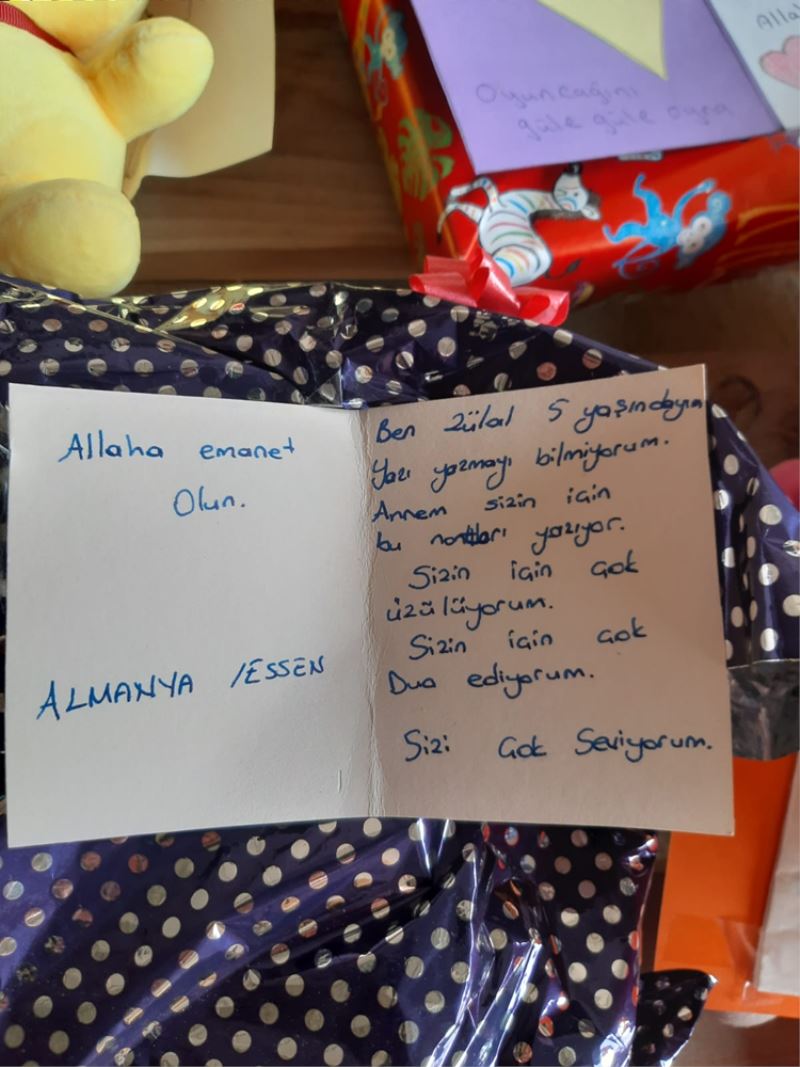 Oyuncağını
güle güle oyna
Allah
Allaha emanet
Olun.
ALMANYA /ESSEN
Ben Zülal 5 yaşındayım
Yazı yazmayı bilmiyorum.
Annem sizin için
bu notları yazıyor.
Sizin için çok
üzülüyorum.
Sizin için çok
Dua ediyorum.
Sizi Çok Seviyorum.